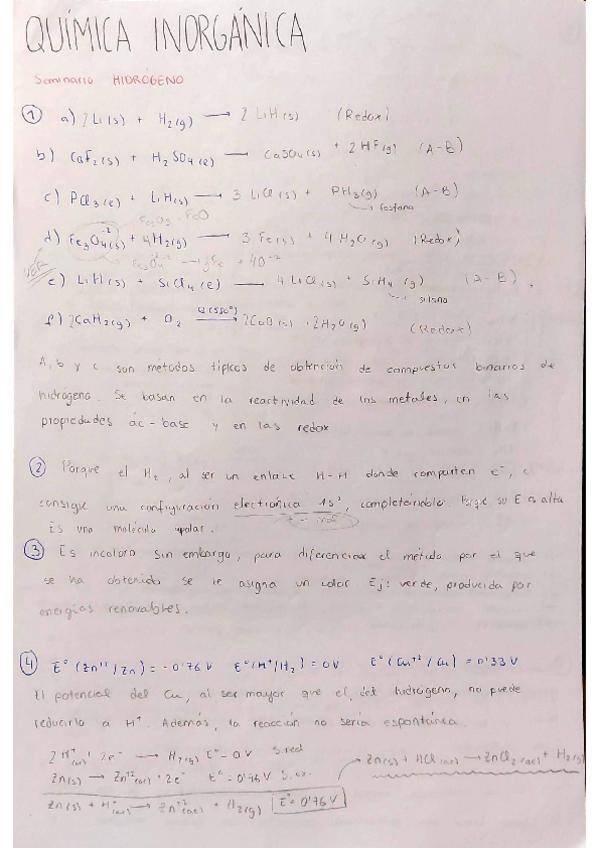 QUÍMICA INORGÁNICA
Seminario HIDRÓGENO
① a) 2Li(s) + H2(g) → 2 LiH(s) (Redox)
b) CaF2(s) + H2SO4(e) → CaSO4(s) + 2HF(g) (A-B)
c) PCl3(e) + LiH(s) → 3 LiCl(s) + PH3(g) (A-B)
→ fosfano
Fe2O3 · FeO
d) Fe3O4(s) + 4H2(g) → 3 Fe(s) + 4 H2O(g) (Redox)
e) LiH(s) + SiCl4(e) → 4LiCl(s) + SiH4(g) (A-B).
→ silano
f) 2CaH2(g) + O2 → 2CaO(s) + 2H2O(g) (Redox)
A, b y c son métodos típicos de obtención de compuestos binarios de
hidrógeno. Se basan en la reactividad de los metales, en las
propiedades ác-base y en las redox
② Porque el H2, al ser un enlace H-H donde comparten e-,
consigue una configuración electrónica 1s2, completándola. Porque su E es alta
Es una molécula apolar.
③ Es incoloro sin embargo, para diferenciar el método por el que
se ha obtenido se le asigna un color Ej: verde, producida por
energías renovables.
④ E°(Zn+2/Zn) = -0'76 V E°(H+/H2) = 0V E°(Cu+2/Cu) = 0'33V
El potencial del Cu, al ser mayor que el del hidrógeno, no puede
reducirlo a H+. Además, la reacción no sería espontánea.
2H+(ac) + 2e- → H2(g) E°=0V S.red
Zn(s) → Zn+2(ac) + 2e- E°=0'76V S.ox.
Zn(s) + HCl(ac) → ZnCl2(ac) + H2(g)
Zn(s) + H+(ac) → Zn+2(ac) + H2(g) E°=0'76V